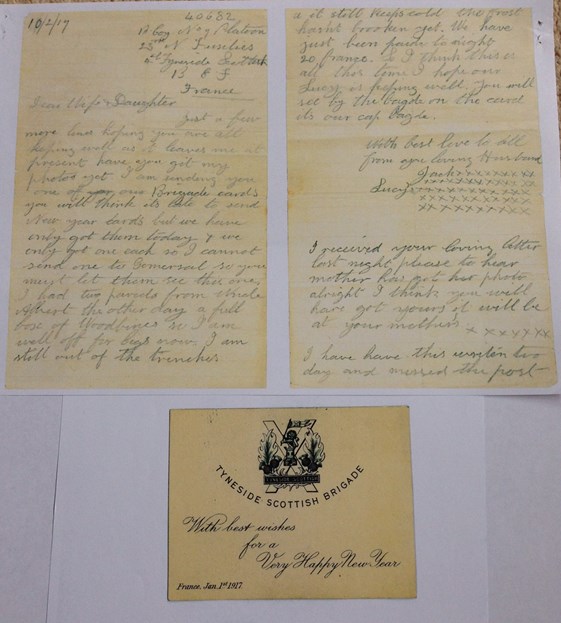 10/2/17
40682
B Coy No 9 Platoon
23rd N Fusiliers
4th Tyneside Scottish
B E F
France
Dear Wife & Daughter
Just a few
more lines hoping you are all
keeping well as it leaves me at
present have you got my
photos yet I am sending you
one of our Brigade cards
you will think its late to send
New year cards but we have
only got them today & we
only got one each so I cannot
send one to Gomersal so you
must let them see this one,
I had two parcels from Uncle
Albert the other day a full
box of Woodbines so I am
well off for cigs now. I am
still out of the trenches
& it still keeps cold the frost
hasnt brooken yet. We have
just been paid to night
20 francs. So I think this is
all this time I hope our
Lucy is keeping well. You will
see by the bagde on the card
its our cap bagde.
With best love to all
from your loving Husband
Jack x x x x x x x x
Lucy x x x x x x x x
x x x x x x x x
x x x x x x x x
I received your loving letter
last night, please to hear
mother has got her photo
alright I think you will
have got yours it will be
at your mothers x x x x x x x
I have have this writen two
day and missed the post
TYNESIDE SCOTTISH
TYNESIDE SCOTTISH BRIGADE
With best wishes
for a
Very Happy New Year
France, Jan. 1st 1917